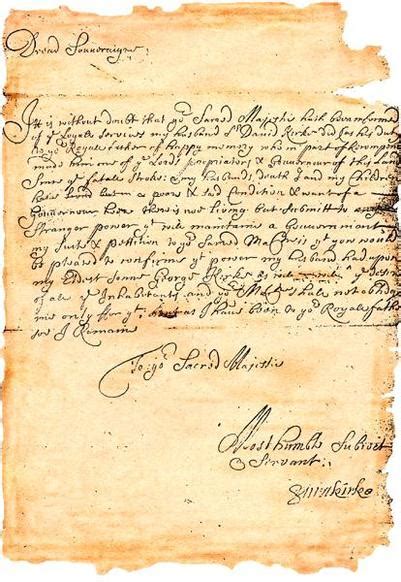 Dread Souveraigne:
It is without doubt that yor Sacred Majestie hath been informed
of ye Loyale services my husband Sr David Kirke did for his duty
to yor Royale father of happy memory who in part of
made him one of ye Lords proprietors & Gouvernour of this Land
Since ye fatale Stroke my husbands death I and my Children
have lived but in a poore & sad Condition & want of a
Gouvernour here there is noe living but submitt to
Stranger power yt will maintaine a Gouvernment
my Suite & Petition to yor Sacred Ma is yt you would
be pleased to confirme ye power my husband had upon
my Eldest Sonne George Kirke ye desire
of all ye Inhabitants and yor shall not oblidge
me only for yt but as I have been to yor Royale father
soe I Remain
To yor Sacred Majestie
Most humble Subiect
& Servant:
Kirke